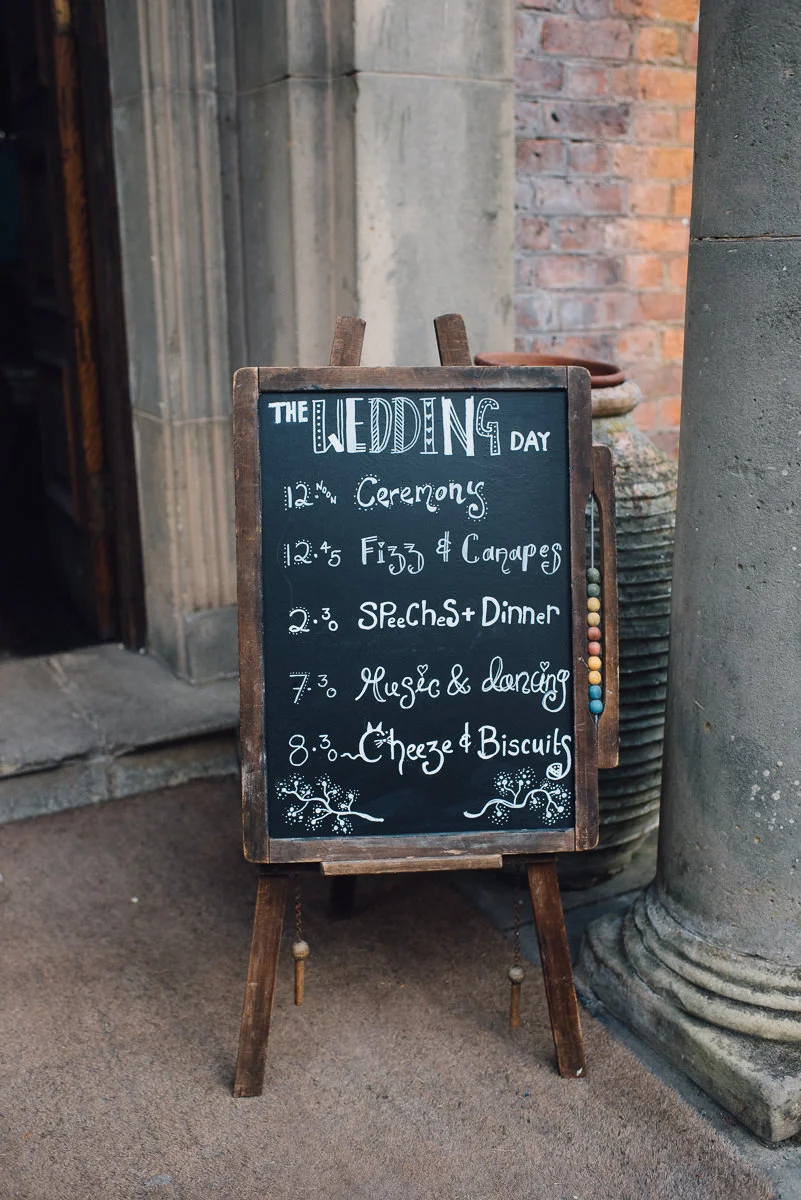 THE WEDDING DAY
12.NOON Ceremony
12.45 Fizz & Canapes
2.30 SPeeCheS + Dinner
7.30 Music & dancing
8.30 ~ Cheeze & Biscuits